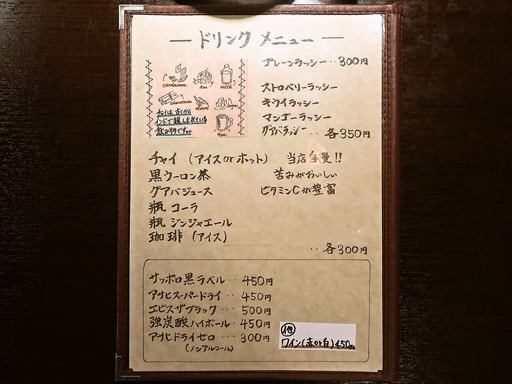 ドリンク メニュー
プレーンラッシー‥300円
ストロベリーラッシー
キウイラッシー
マンゴーラッシー
グァバラッシー‥各350円
チャイは、古くから
インドで親しまれている
飲み物です。
チャイ（アイス or ホット） 当店自慢!!
黒ウーロン茶 苦みがおいしい
グアバジュース ビタミンCが豊富
瓶 コーラ
瓶 ジンジャエール
珈琲（アイス）
‥各300円
サッポロ黒ラベル‥450円
アサヒスーパードライ‥450円
エビスザブラック‥500円
強炭酸ハイボール‥450円
アサヒドライゼロ‥300円
(ノンアルコール)
他
ワイン(赤or白)450円